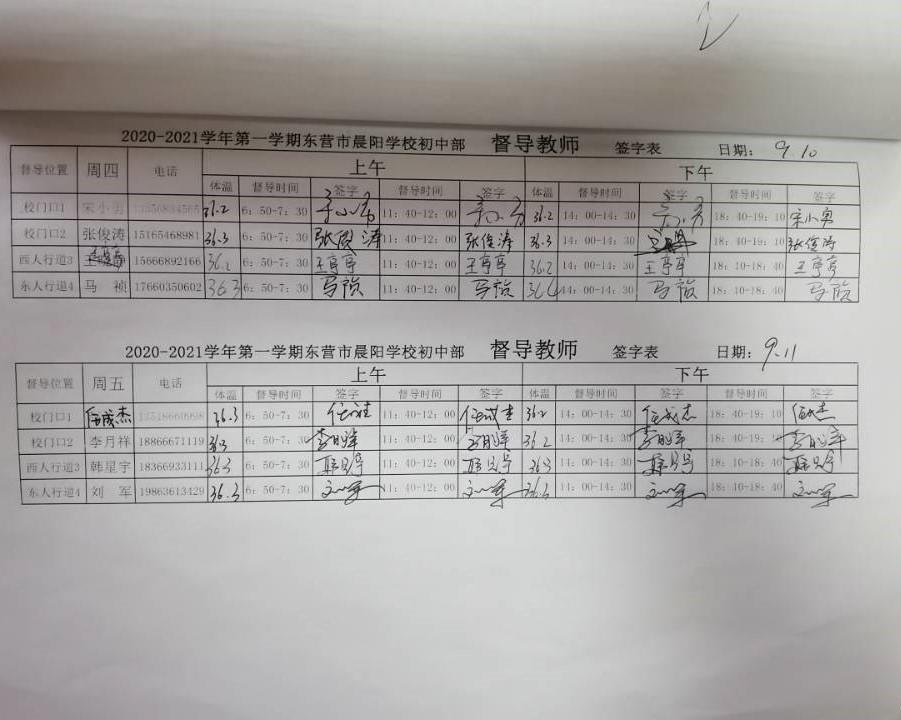 2020-2021学年第一学期东营市晨阳学校初中部 督导教师 签字表 日期: 9.10
督导位置 周四 电话 上午 下午
体温 督导时间 签字 督导时间 签字 体温 督导时间 签字 督导时间 签字
校门口1 宋小勇 36.2 6: 50-7: 30 宋小勇 11: 40-12: 00 宋小勇 36.2 14: 00-14: 30 宋小勇 18: 40-19: 10 宋小勇
校门口2 张俊涛 15165468981 36.3 6: 50-7: 30 张俊涛 11: 40-12: 00 张俊涛 36.3 14: 00-14: 30 18: 40-19: 10 张俊涛
西人行道3 15666892166 36.2 6: 50-7: 30 王亭亭 11: 40-12: 00 王亭亭 36.2 14: 00-14: 30 王亭亭 18: 10-18: 40 王亭亭
东人行道4 马 祯 17660350602 36.3 6: 50-7: 30 马祯 11: 40-12: 00 马祯 36.4 14: 00-14: 30 马祯 18: 10-18: 40 马祯
2020-2021学年第一学期东营市晨阳学校初中部 督导教师 签字表 日期: 9.11
督导位置 周五 电话 上午 下午
体温 督导时间 签字 督导时间 签字 体温 督导时间 签字 督导时间 签字
校门口1 伍成杰 36.3 6: 50-7: 30 11: 40-12: 00 伍成杰 36.2 14: 00-14: 30 伍成杰 18: 40-19: 10 伍成杰
校门口2 李月祥 18866671119 36.3 6: 50-7: 30 李月祥 11: 40-12: 00 李月祥 36.2 14: 00-14: 30 李月祥 18: 40-19: 10 李月祥
西人行道3 韩星宇 18366933111 36.3 6: 50-7: 30 韩星宇 11: 40-12: 00 韩星宇 36.3 14: 00-14: 30 韩星宇 18: 10-18: 40 韩星宇
东人行道4 刘 军 19863613429 36.3 6: 50-7: 30 刘军 11: 40-12: 00 刘军 36.3 14: 00-14: 30 刘军 18: 10-18: 40 刘军